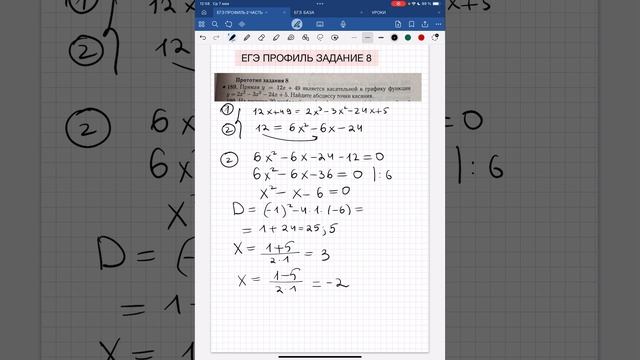 12:58 Ср 7 мая
ЕГЭ ПРОФИЛЬ 2 ЧАСТЬ
ЕГЭ БАЗА
УРОКИ
ЕГЭ ПРОФИЛЬ ЗАДАНИЕ 8
Прототип задания 8
189. Прямая y = 12x + 49 является касательной к графику функции
y = 2x³ − 3x² − 24x + 5. Найдите абсциссу точки касания.
① 12x+49 = 2x³-3x²-24x+5
② 12 = 6x²-6x-24
② 6x²-6x-24-12=0
6x²-6x-36=0 |:6
x²-x-6=0
D = (-1)²-4·1·(-6)=
= 1+24=25; 5
X = 1+5/2·1 = 3
X = 1-5/2·1 = -2